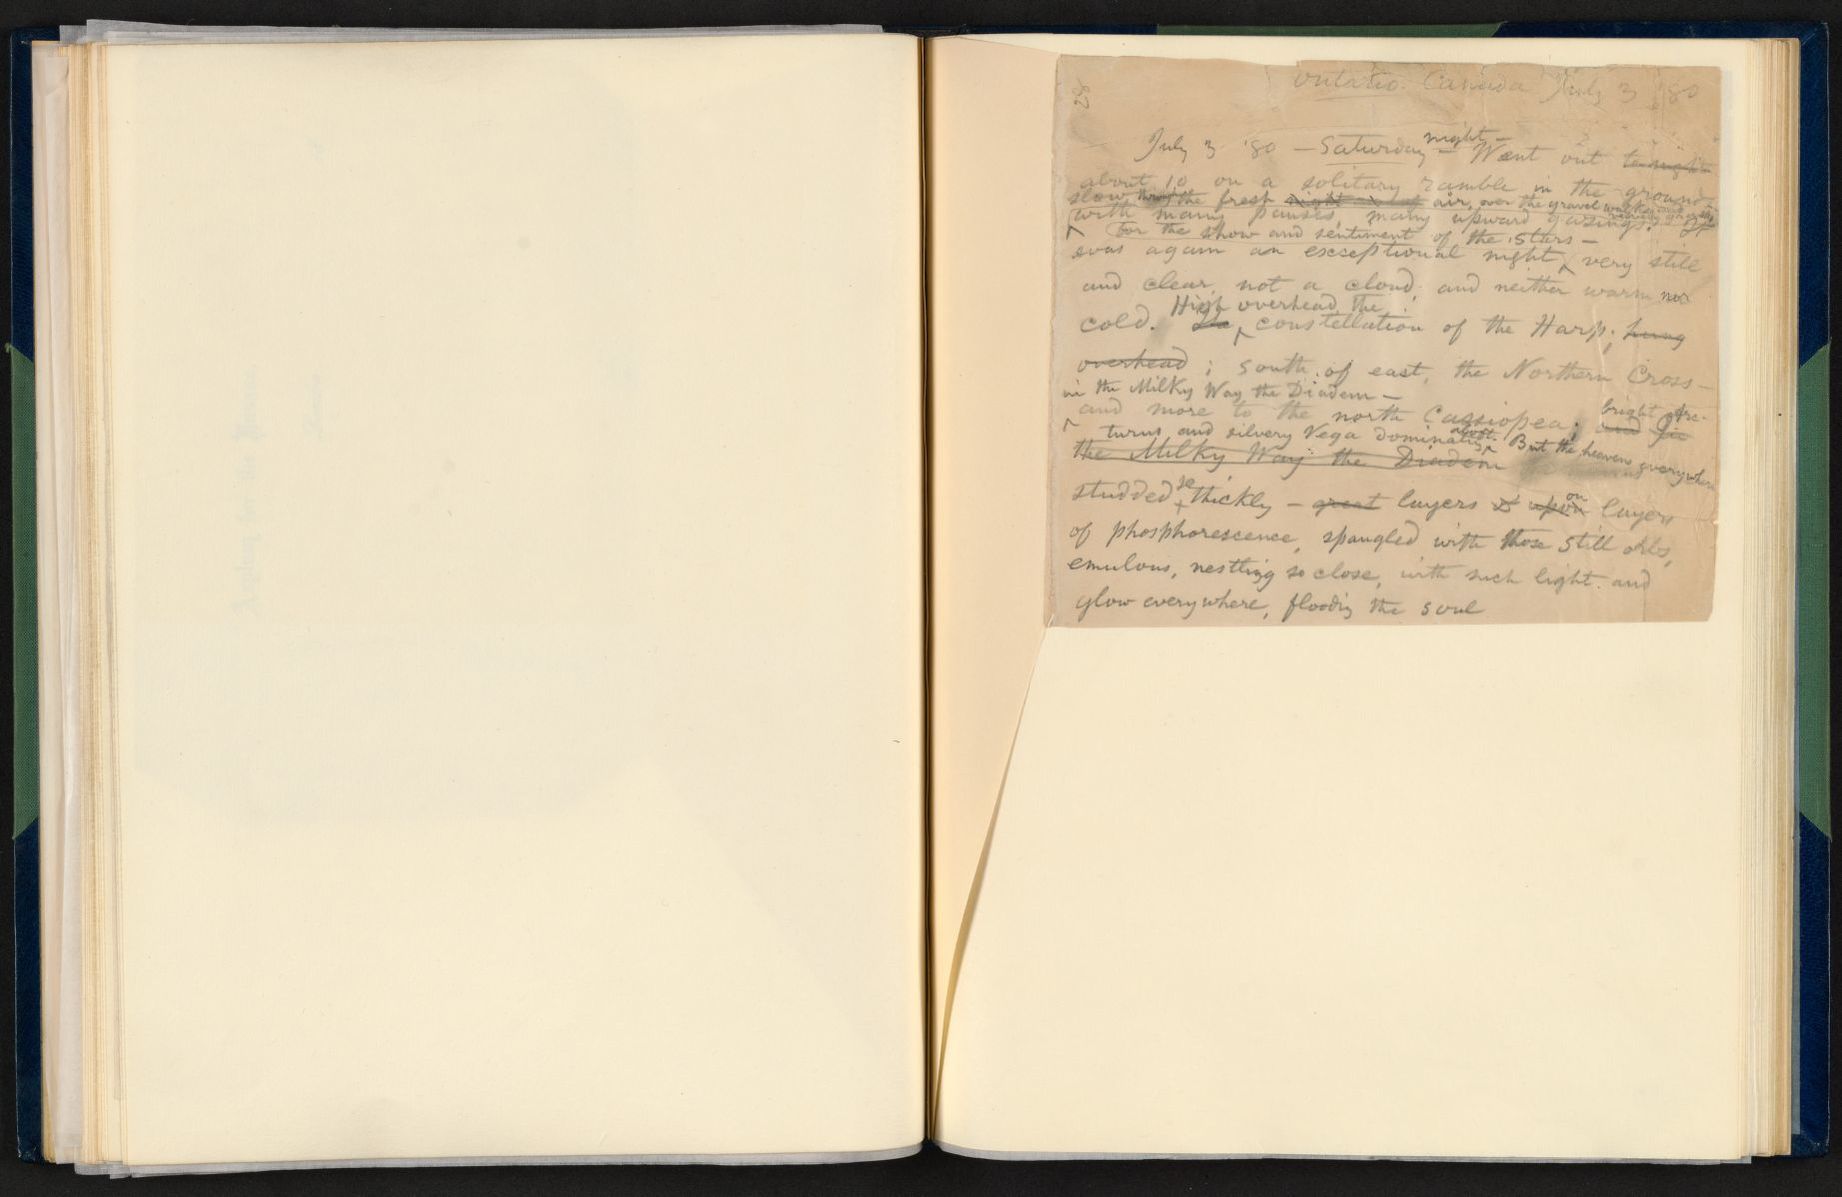 28
Ontario. Canada July 3 '80
night –
July 3 '80 – Saturday – Went out to-night
about 10 on a solitary ramble in the grounds
slow through the fresh night air, over the gravel walks
with many pauses, many upward gazings. It
for the show and sentiment of the stars –
was again an exceptional night, very still
and clear, not a cloud, and neither warm nor
High overhead the
cold. The constellation of the Harp; hung
overhead; south of east, the Northern Cross –
in the Milky Way the Diadem –
and more to the north Cassiopea; and in
bright Arc-
turus and silvery Vega dominating
about. But the heavens everywhere
the Milky Way the Diadem
studded so thickly – great layers upon on layers
of phosphorescence, spangled with those still orbs,
emulous, nestling so close, with such light and
glow everywhere, flooding the soul